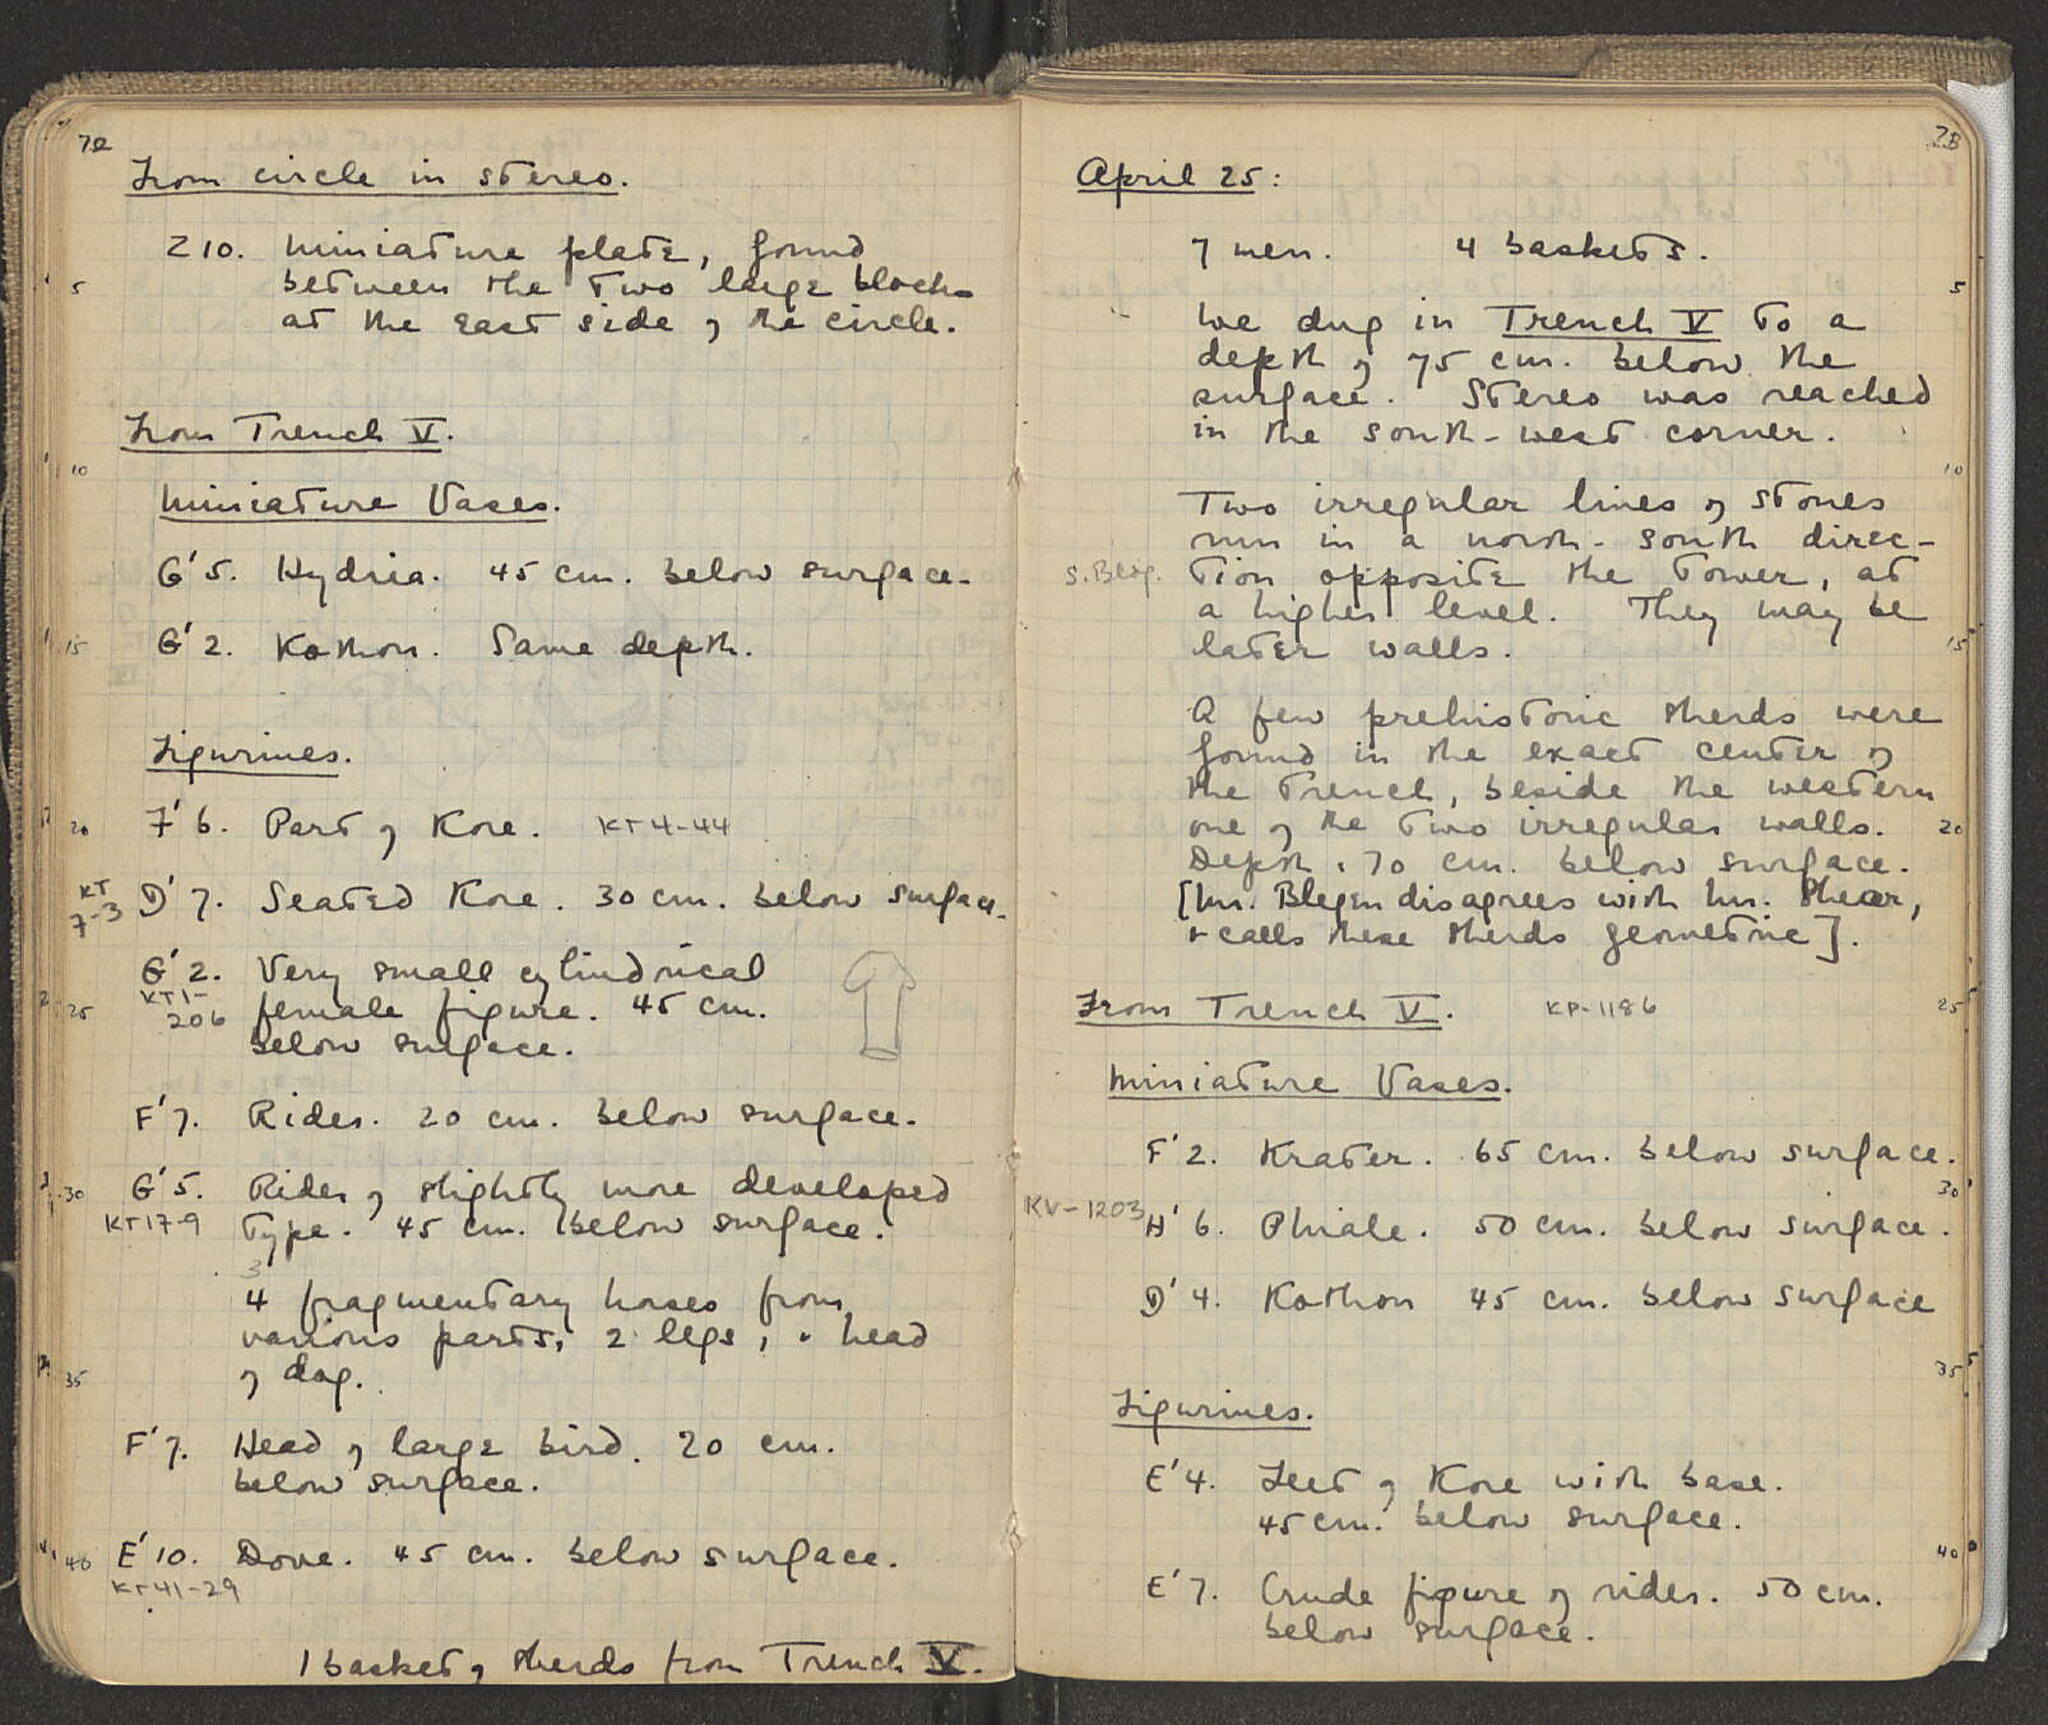 72
From circle in stereo.
Z 10. Miniature plate, found
5 between the two large blocks
at the east side of the circle.
From Trench V.
10
Miniature Vases.
G'5. Hydria. 45 cm. below surface.
15 G'2. Kothon. Same depth.
Figurines.
20 F'6. Part of Kore. KT 4-44
KT 7-3 D'7. Seated Kore. 30 cm. below surface.
G'2. Very small cylindrical
KT1-206 25 female figure. 45 cm.
below surface.
F'7. Rider. 20 cm. below surface.
30 G'5. Rider of slightly more developed
KT17-9 type. 45 cm. below surface.
3
4 fragmentary horses from
various parts, 2 legs, head
35 of dog.
F'7. Head of large bird. 20 cm.
below surface.
40 E'10. Dove. 45 cm. below surface.
KT41-29
1 basket of sherds from Trench V.
73
April 25:
7 men. 4 baskets.
5
We dug in Trench V to a
depth of 75 cm. below the
surface. Stereo was reached
in the south-west corner.
10
Two irregular lines of stones
run in a north-south direc-
S. Bldg. tion opposite the tower, at
a higher level. They may be
later walls. 15
A few prehistoric sherds were
found in the exact center of
the trench, beside the western
one of the two irregular walls. 20
Depth, 70 cm. below surface.
[Mr. Blegen disagrees with Mr. Shear,
+ calls these sherds geometric].
From Trench V. KP-1186 25
Miniature Vases.
F'2. Krater. 65 cm. below surface.
30
KV-1203 H'6. Phiale. 50 cm. below surface.
D'4. Kothon 45 cm. below surface
35
Figurines.
E'4. Feet of Kore with base.
45 cm. below surface.
40
E'7. Crude figure of rider. 50 cm.
below surface.